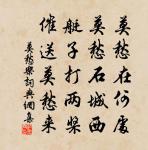 莫愁在何處
莫愁石城西
艇子打兩槳
催送莫愁來
莫愁樂詞典網集